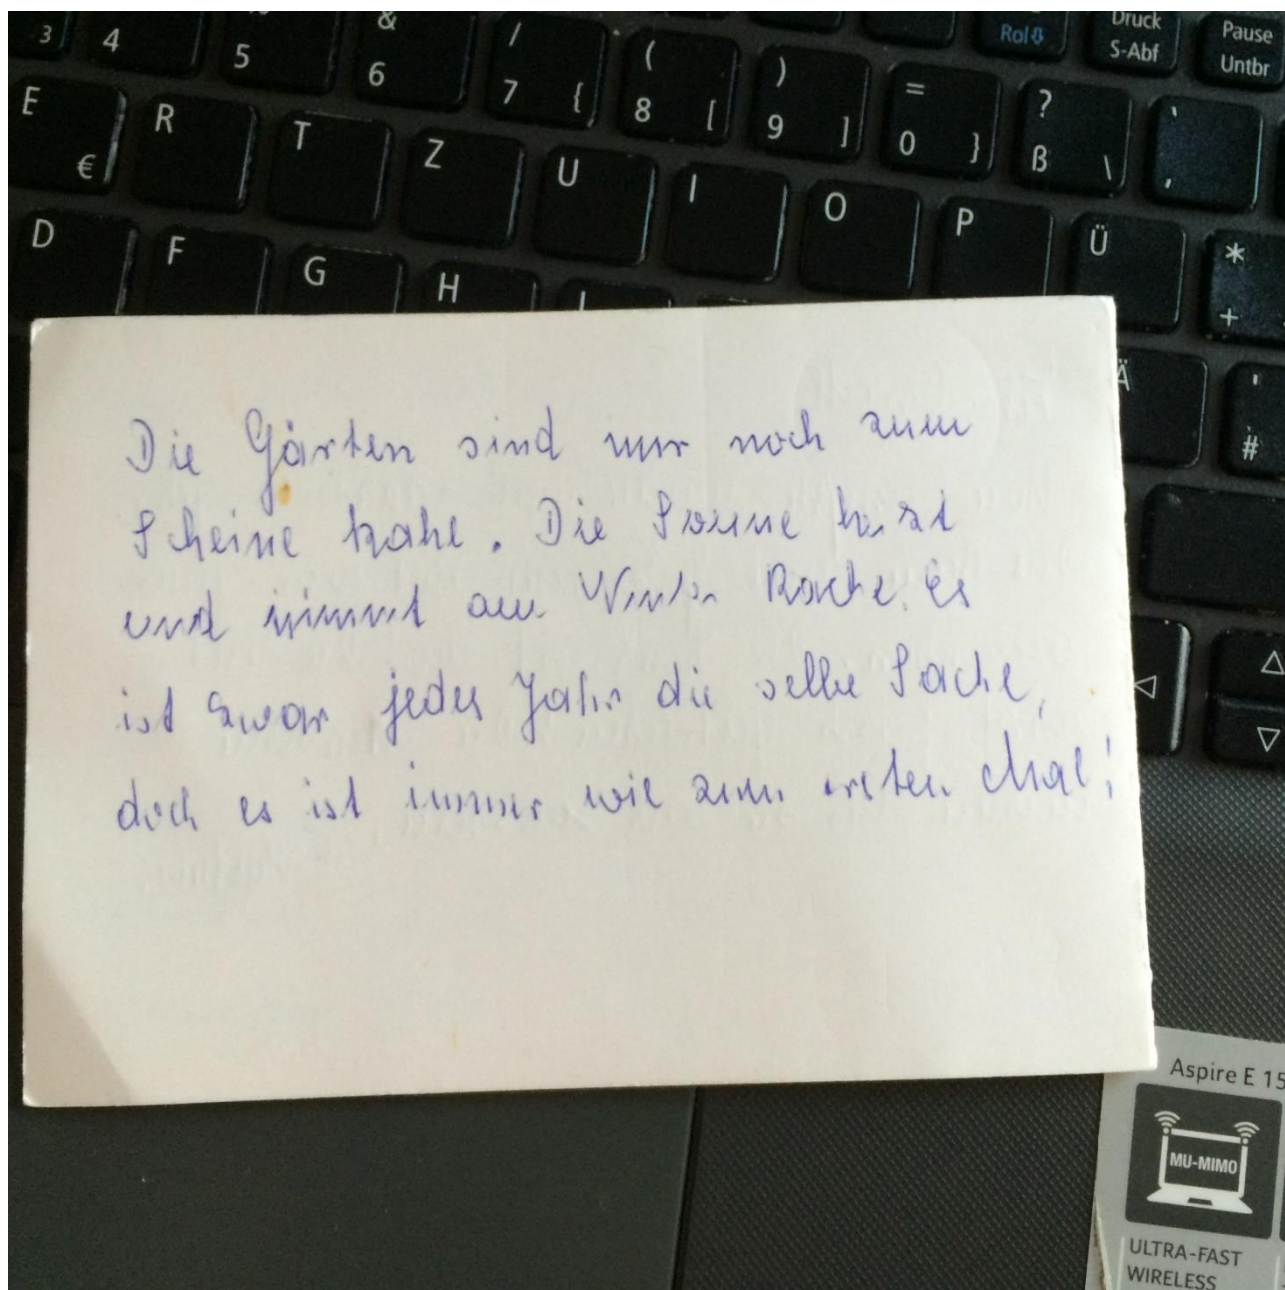 3 4 5 & 6 / 7 { ( 8 [ ) 9 ] = 0 } ? ß \ ` Rol Druck S-Abf Pause Untbr
E € R T Z U I O P Ü * +
D F G H Ä ' #
Die Gärten sind nur noch zum
Scheine kahl. Die Sonne heizt
und nimmt am Winter Rache. Es
ist zwar jedes Jahr die selbe Sache,
doch es ist immer wie zum ersten Mal!
Aspire E 15
MU-MIMO
ULTRA-FAST
WIRELESS